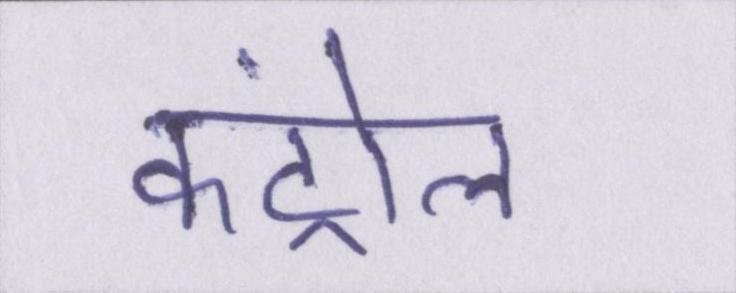 कंट्रोल